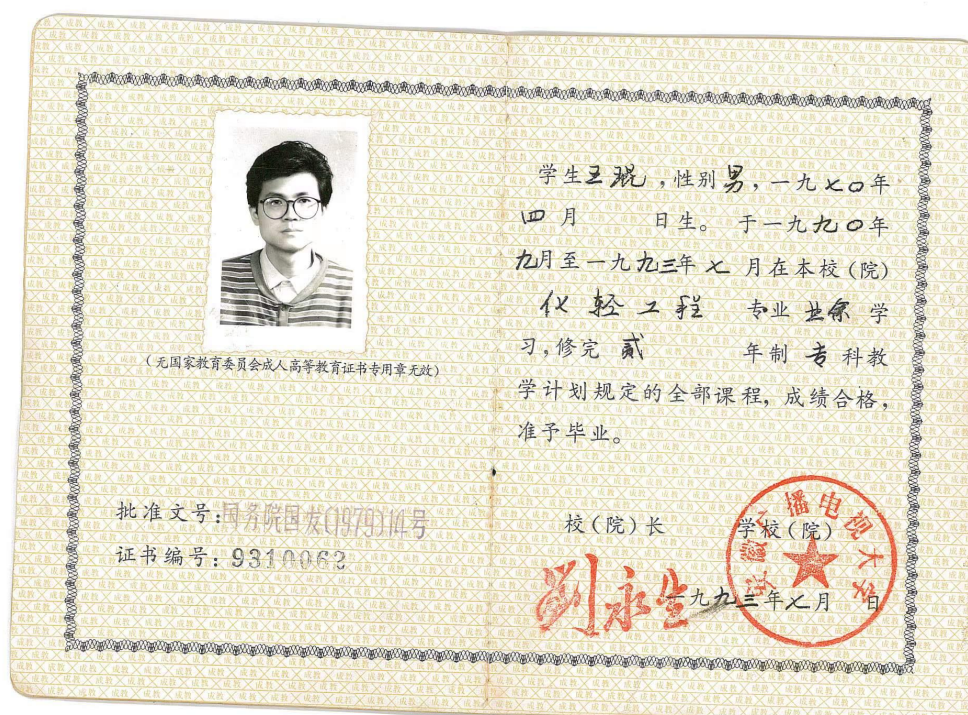 (无国家教育委员会成人高等教育证书专用章无效)
批准文号:国务院国发(1979)14号
证书编号:9310062
学生王琨,性别男,一九七〇年
四月 日生。于一九九〇年
九月至一九九三年七月在本校(院)
化轻工程 专业业余学
习,修完贰 年制专科教
学计划规定的全部课程,成绩合格,
准予毕业。
校(院)长 学校(院)
刘永生
安徽广播电视大学
一九九三年七月 日